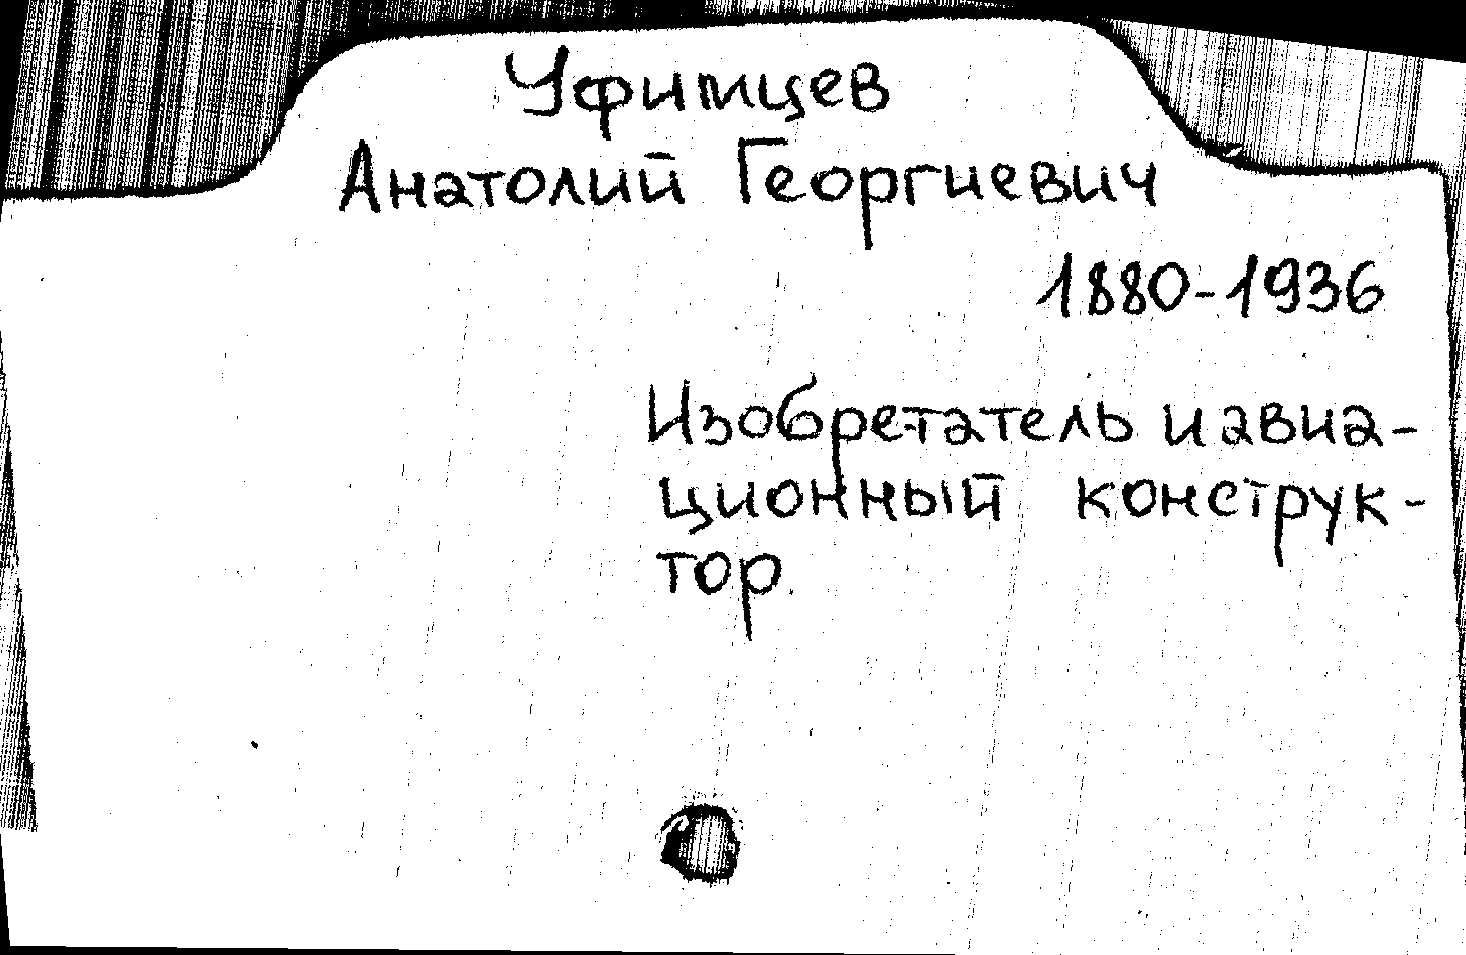 Уфимцев
Анатолий Георгиевич
1880-1936
Изобретатель и авиа-
ционный конструк-
тор.